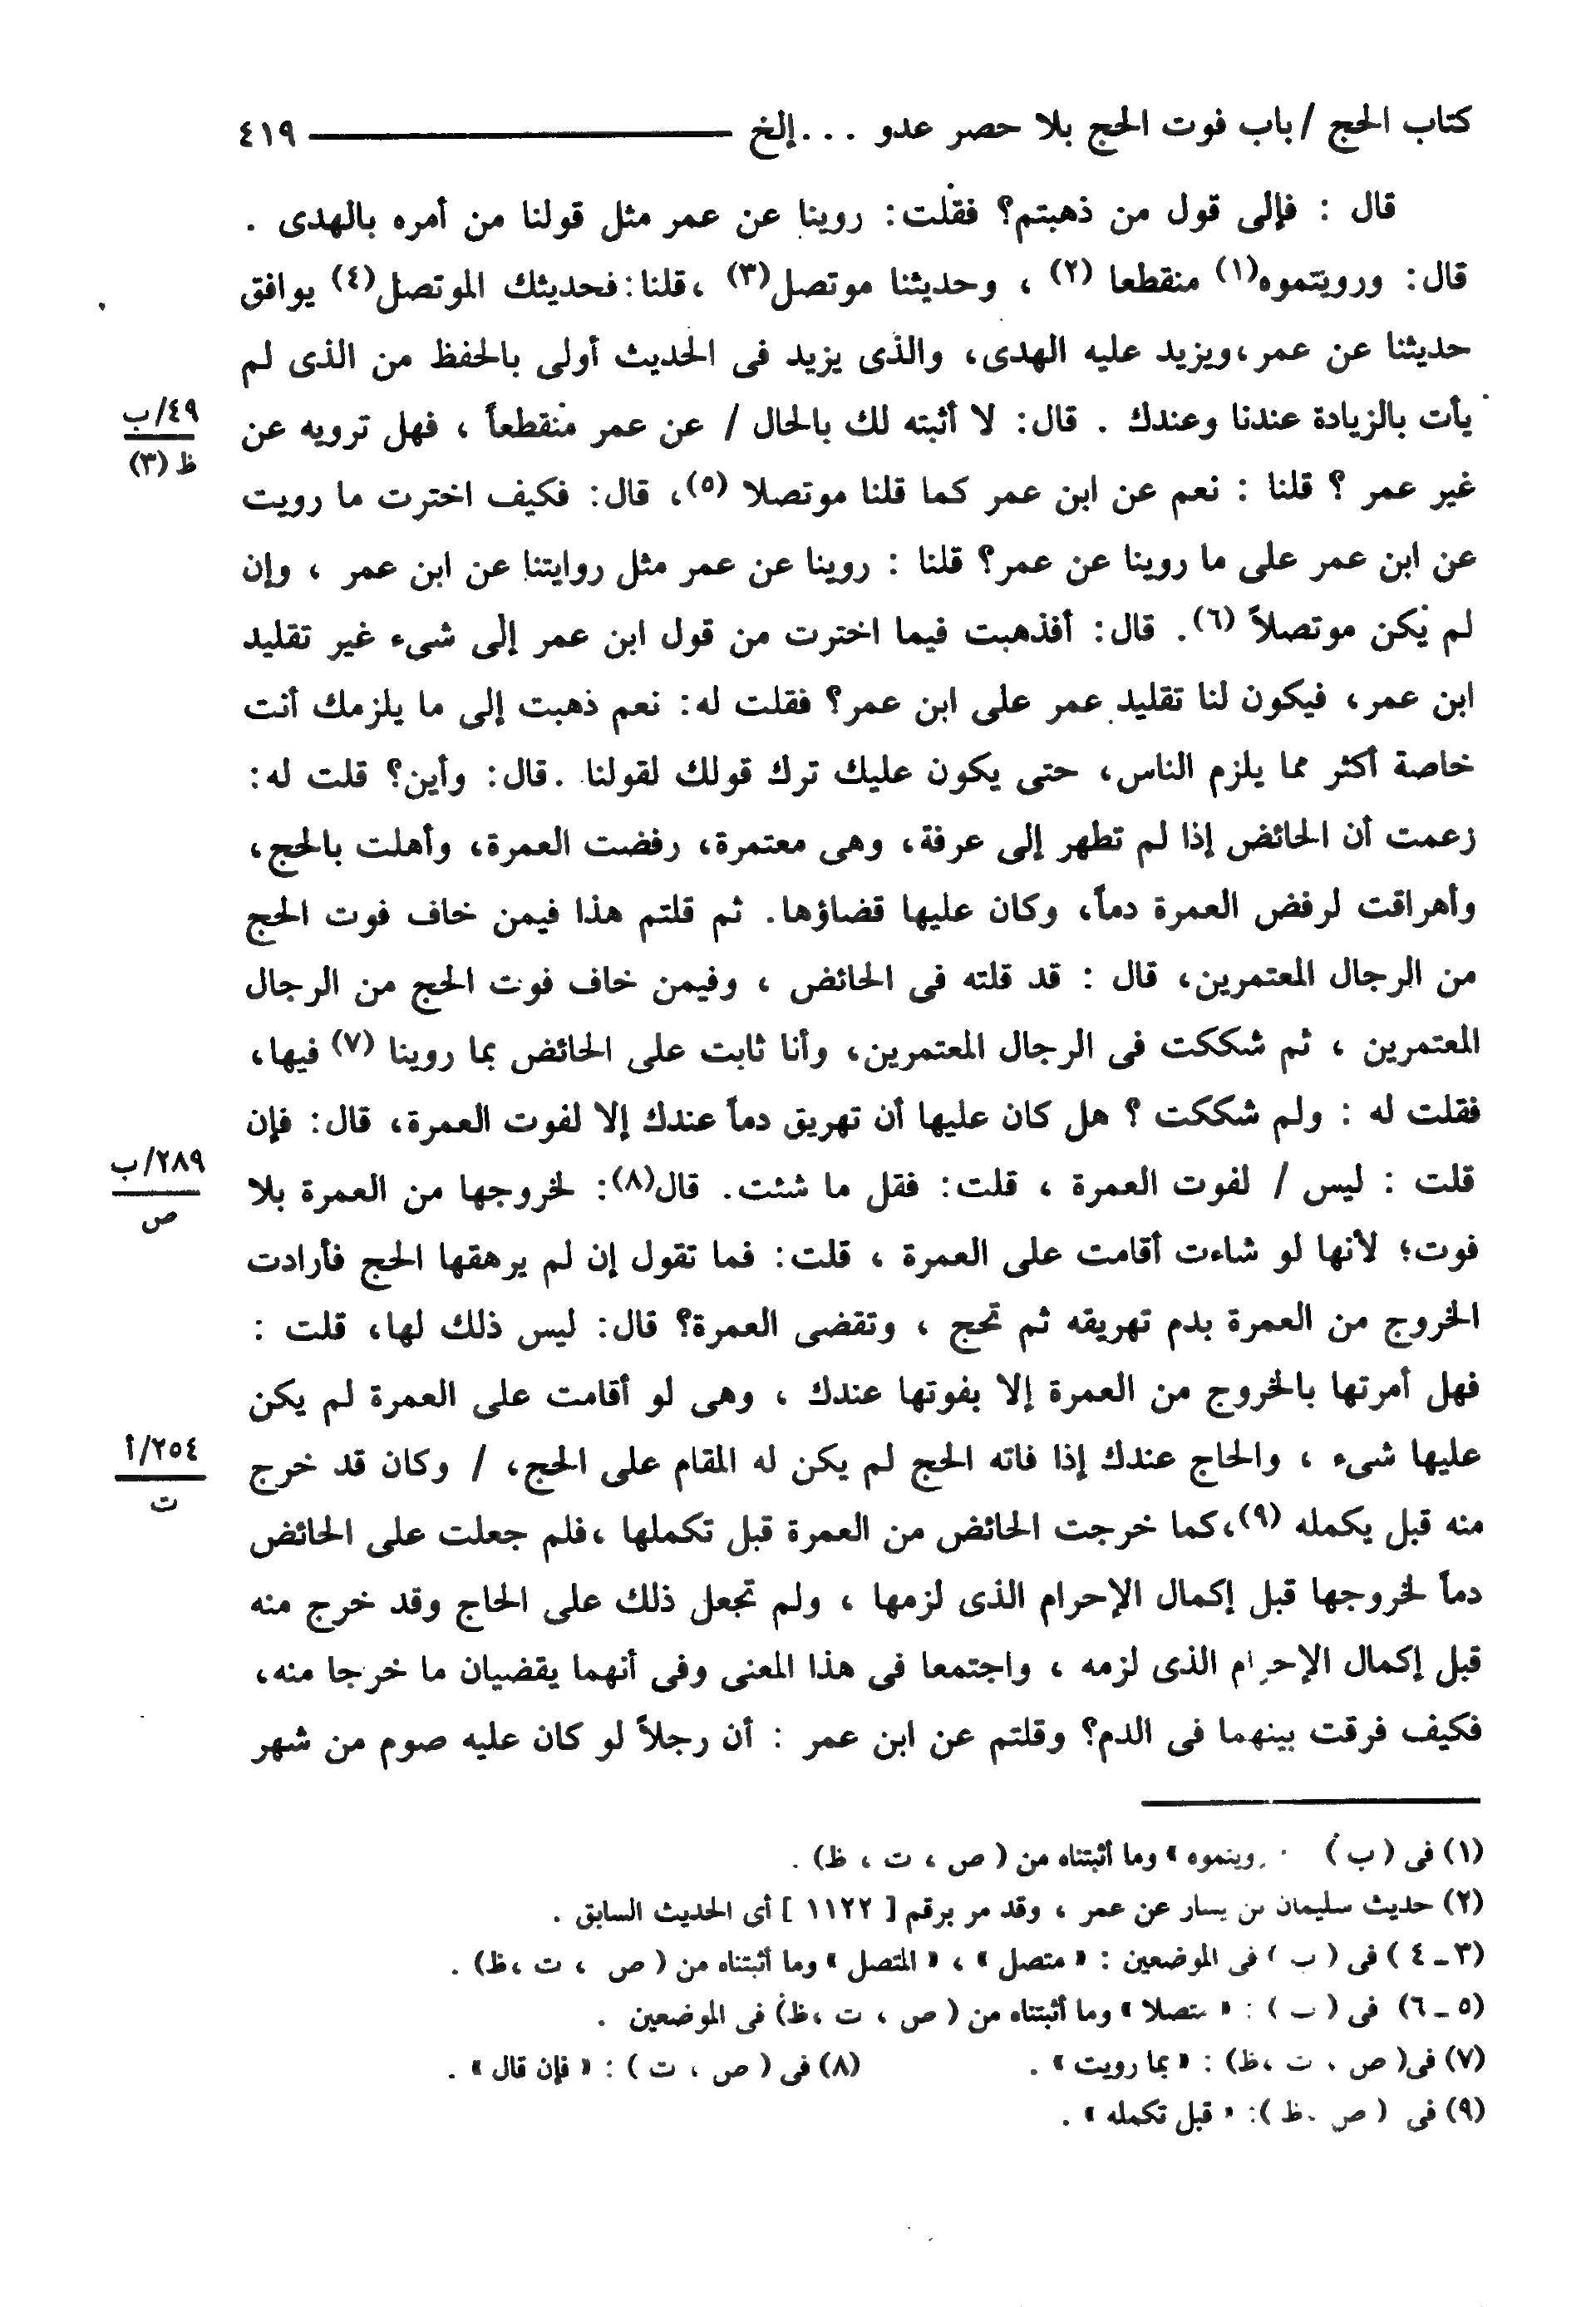 كتاب الحج / باب فوت الحج بلا حصر عدو ... إلخ ٤١٩
قال : فإلى قول من ذهبتم؟ فقلت: روينا عن عمر مثل قولنا من أمره بالهدى .
قال: ورويتموه(١) منقطعا (٢) ، وحديثنا موتصل(٣) ،قلنا:فحديثك الموتصل(٤) يوافق
حديثنا عن عمر،ويزيد عليه الهدى، والذى يزيد فى الحديث أولى بالحفظ من الذى لم
يأت بالزيادة عندنا وعندك . قال: لا أثبته لك بالحال / عن عمر منقطعاً ، فهل ترويه عن
٤٩/ب
ظ (٣)
غير عمر ؟ قلنا : نعم عن ابن عمر كما قلنا موتصلا (٥)، قال: فكيف اخترت ما رويت
عن ابن عمر على ما روينا عن عمر؟ قلنا : روينا عن عمر مثل روايتنا عن ابن عمر ، وإن
لم يكن موتصلاً (٦). قال: أفذهبت فيما اخترت من قول ابن عمر إلى شىء غير تقليد
ابن عمر، فيكون لنا تقليد عمر على ابن عمر؟ فقلت له: نعم ذهبت إلى ما يلزمك أنت
خاصة أكثر مما يلزم الناس، حتى يكون عليك ترك قولك لقولنا .قال: وأين؟ قلت له:
زعمت أن الحائض إذا لم تطهر إلى عرفة، وهى معتمرة، رفضت العمرة، وأهلت بالحج،
وأهراقت لرفض العمرة دماً، وكان عليها قضاؤها. ثم قلتم هذا فيمن خاف فوت الحج
من الرجال المعتمرين، قال : قد قلته فى الحائض ، وفيمن خاف فوت الحج من الرجال
المعتمرين ، ثم شككت فى الرجال المعتمرين، وأنا ثابت على الحائض بما روينا (٧) فيها،
فقلت له : ولم شككت ؟ هل كان عليها أن تهريق دماً عندك إلا لفوت العمرة، قال: فإن
قلت : ليس / لفوت العمرة ، قلت: فقل ما شئت. قال(٨): لخروجها من العمرة بلا
٢٨٩/ب
ص
فوت؛ لأنها لو شاءت أقامت على العمرة ، قلت: فما تقول إن لم يرهقها الحج فأرادت
الخروج من العمرة بدم تهريقه ثم تحج ، وتقضى العمرة؟ قال: ليس ذلك لها، قلت :
فهل أمرتها بالخروج من العمرة إلا بفوتها عندك ، وهى لو أقامت على العمرة لم يكن
عليها شىء ، والحاج عندك إذا فاته الحج لم يكن له المقام على الحج، / وكان قد خرج
٢٥٤/أ
ت
منه قبل يكمله (٩)،كما خرجت الحائض من العمرة قبل تكملها ،فلم جعلت على الحائض
دماً لخروجها قبل إكمال الإحرام الذى لزمها ، ولم تجعل ذلك على الحاج وقد خرج منه
قبل إكمال الإحرام الذى لزمه ، واجتمعا فى هذا المعنى وفى أنهما يقضيان ما خرجا منه،
فكيف فرقت بينهما فى الدم؟ وقلتم عن ابن عمر : أن رجلاً لو كان عليه صوم من شهر
(١) فى ( ب ) وينموه » وما أثبتناه من ( ص ، ت ، ظ) .
(٢) حديث سليمان بن يسار عن عمر ، وقد مر برقم [ ١١٢٢ ] أى الحديث السابق .
(٣ ـ ٤ ) فى ( ب ) فى الموضعين : « متصل » ، « المتصل » وما أثبتناه من ( ص ، ت ،ظ) .
(٥ ـ ٦) فى ( ب ) : « متصلا » وما أثبتناه من ( ص ، ت ،ظ) فى الموضعين .
(٧) فى( ص ، ت ،ظ) : « بما رويت » . (٨) فى ( ص ، ت ) : « فإن قال » .
(٩) فى ( ص ، ظ ): « قبل تكمله » .